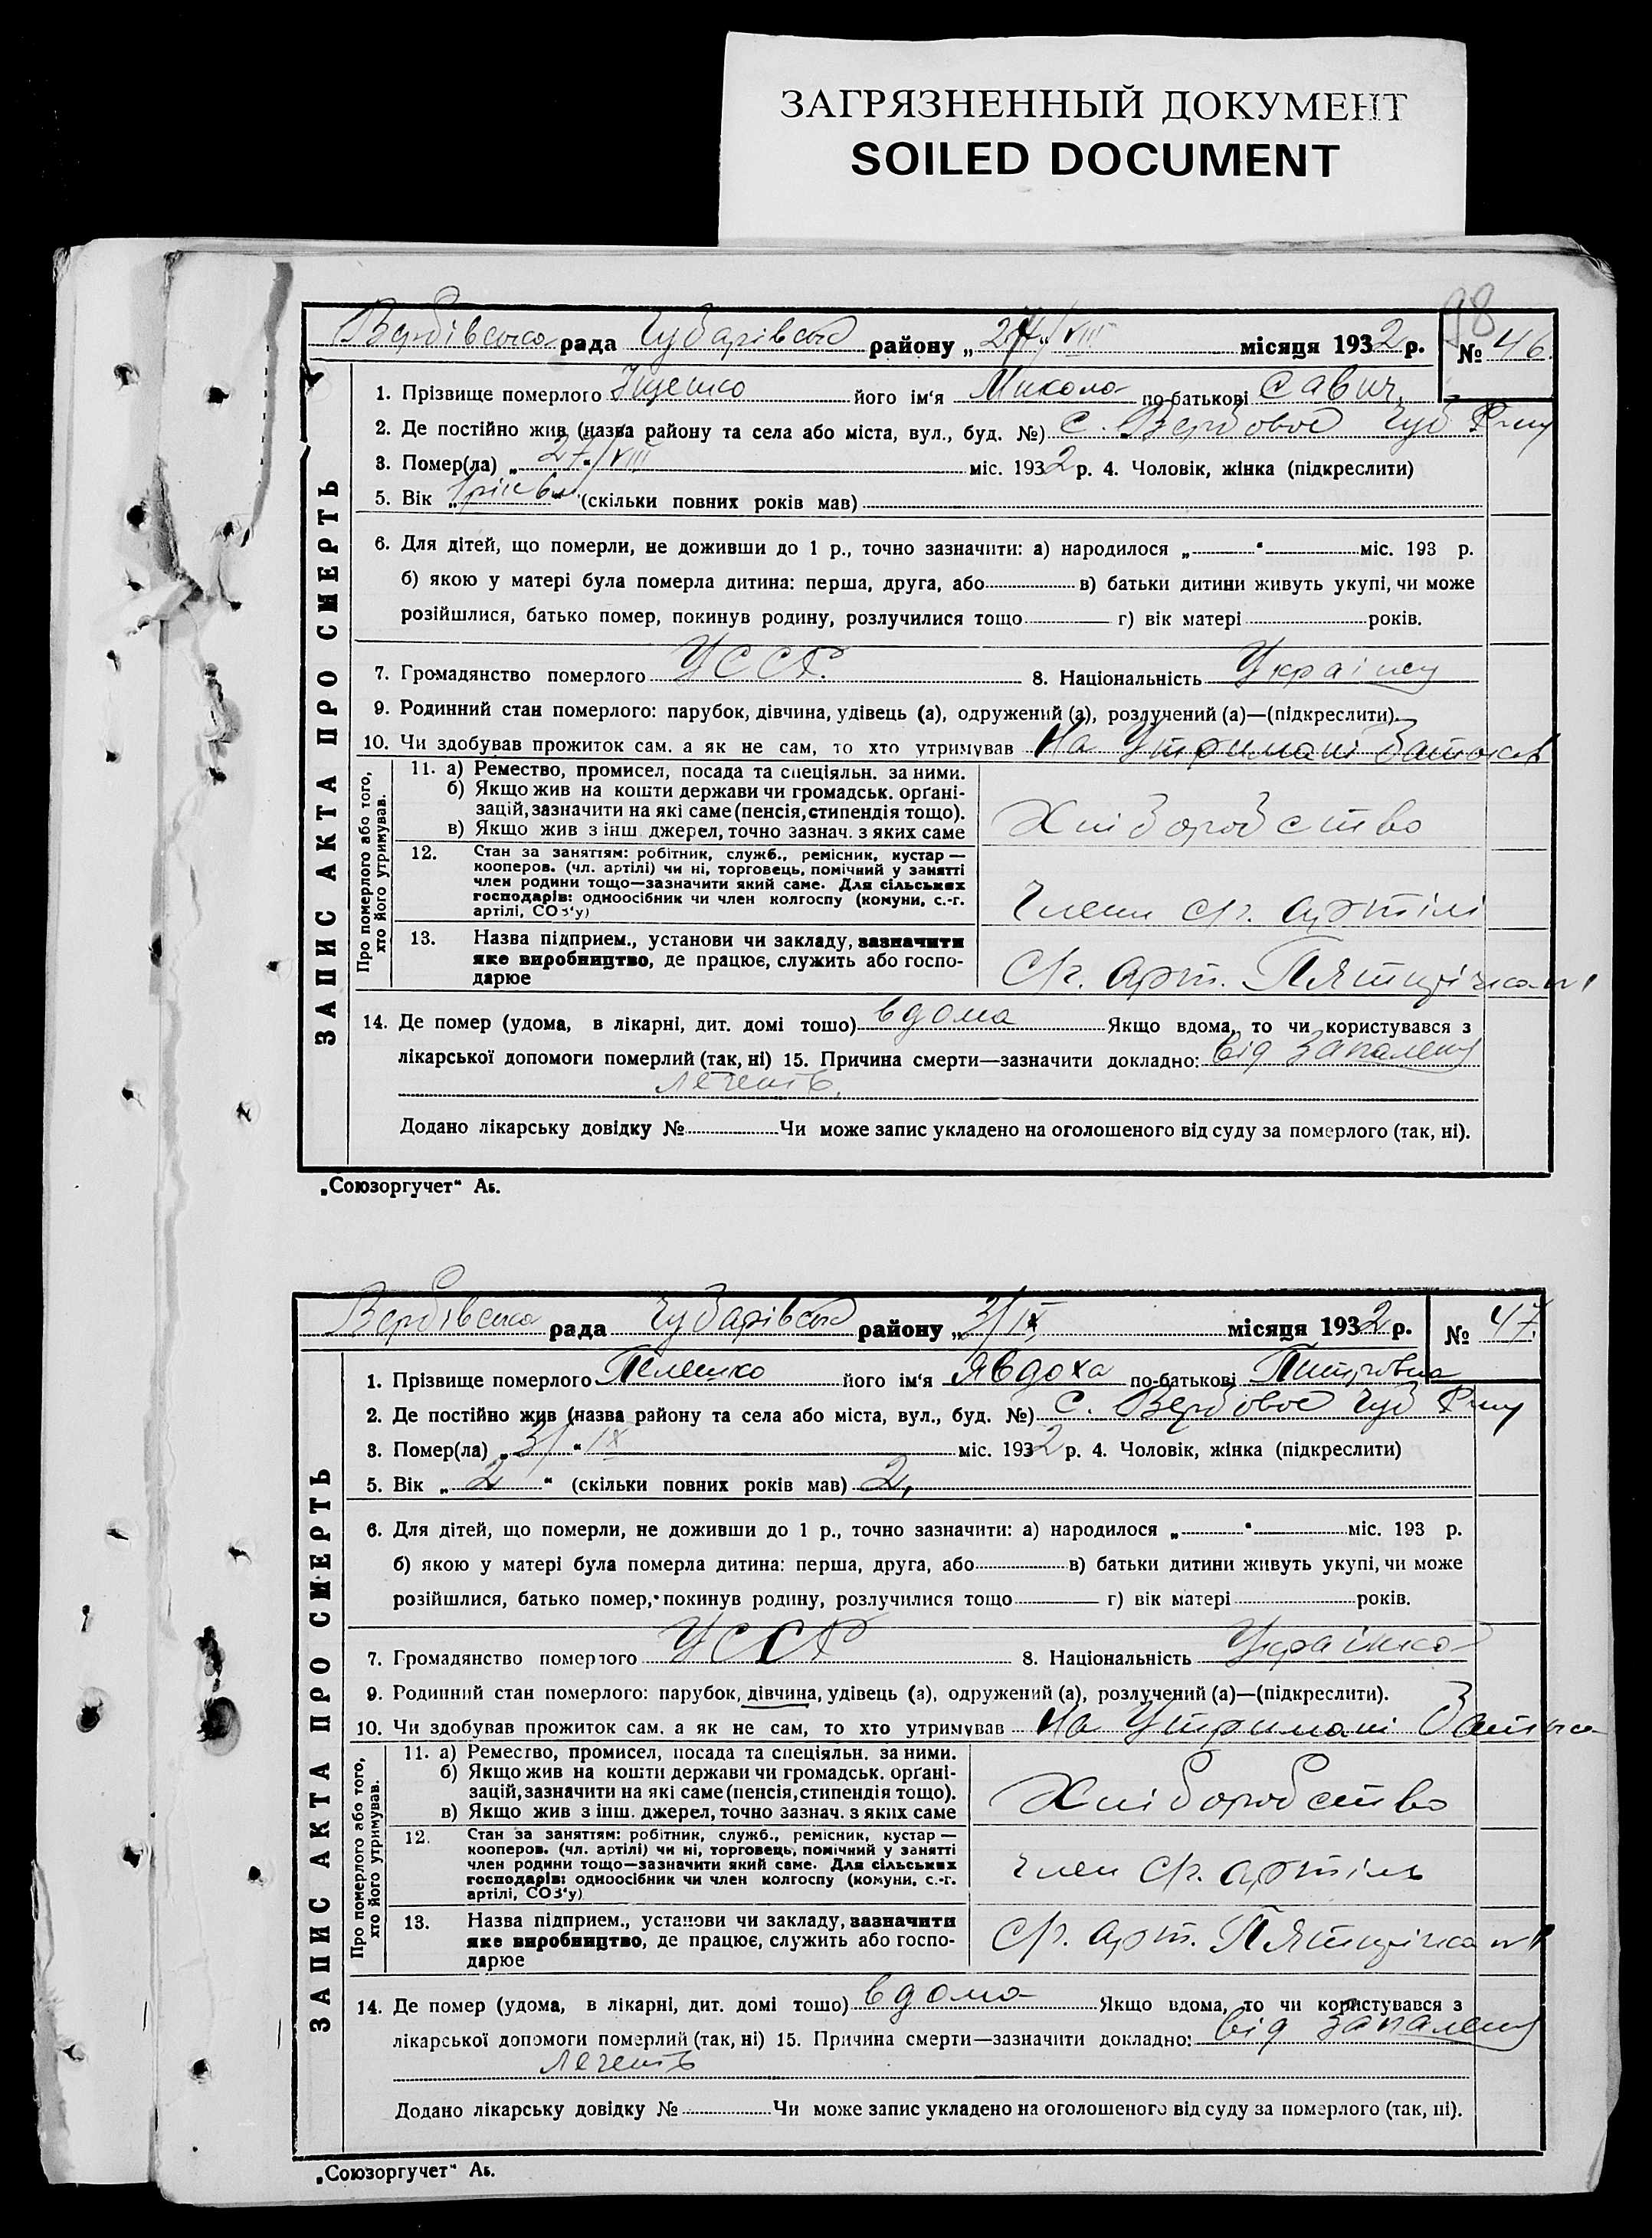 ЗАГРЯЗНЕННЫЙ ДОКУМЕНТ
SOILED DOCUMENT
98
Вербівська рада Чубарівськ району „27“/VIII місяця 1932 р. № 46.
ЗАПИС АКТА ПРО СМЕРТЬ
1. Прізвище померлого його ім'я Микола по-батькові Савич.
2. Де постійно жив (назва району та села або міста, вул., буд. №) с. Вербовое Чуб Р-ну
3. Помер(ла) „27“/VIII міс. 1932 р. 4. Чоловік, жінка (підкреслити)
5. Вік „1 рік 6 м.“ (скільки повних років мав)
6. Для дітей, що померли, не доживши до 1 р., точно зазначити: а) народилося „ “ міс. 193 р.
б) якою у матері була померла дитина: перша, друга, або в) батьки дитини живуть укупі, чи може
розійшлися, батько помер, покинув родину, розлучилися тощо г) вік матері років.
7. Громадянство померлого УССР. 8. Національність Украінец
9. Родинний стан померлого: парубок, дівчина, удівець (а), одружений (а), розлучений (а)—(підкреслити).
10. Чи здобував прожиток сам, а як не сам, то хто утримував На Утримані Батьків
Про померлого або того, хто його утримував.
11. а) Ремество, промисел, посада та спеціяльн. за ними.
б) Якщо жив на кошти держави чи громадськ. органі-
зацій, зазначити на які саме (пенсія, стипендія тощо).
в) Якщо жив з інш. джерел, точно зазнач. з яких саме
Хліборобство
12. Стан за заняттям: робітник, служб., ремісник, кустар —
кооперов. (чл. артілі) чи ні, торговець, помічний у занятті
член родини тощо—зазначити який саме. Для сільських
господарів: одноосібник чи член колгоспу (комуни, с.-г.
артілі, СОЗ'у)
Члени с/г. артілі
13. Назва підприєм., установи чи закладу, зазначити
яке виробництво, де працює, служить або госпо-
дарює
с/г. арт. Пятирічка №1
14. Де помер (удома, в лікарні, дит. домі тощо) вдома Якщо вдома, то чи користувався з
лікарської допомоги померлий (так, ні) 15. Причина смерти—зазначити докладно: від запалену
легень.
Додано лікарську довідку № Чи може запис укладено на оголошеного від суду за померлого (так, ні).
„Союзоргучет“ Аб.
Вербівська рада Чубарівськ району „3/IX місяця 1932 р. № 47.
ЗАПИС АКТА ПРО СМЕРТЬ
1. Прізвище померлого його ім'я Явдоха по-батькові
2. Де постійно жив (назва району та села або міста, вул., буд. №) с. Вербовое Чуб Р-ну
3. Помер(ла) „3/“ IX міс. 1932 р. 4. Чоловік, жінка (підкреслити)
5. Вік „2“ (скільки повних років мав) 2,
6. Для дітей, що померли, не доживши до 1 р., точно зазначити: а) народилося „ “ міс. 193 р.
б) якою у матері була померла дитина: перша, друга, або в) батьки дитини живуть укупі, чи може
розійшлися, батько помер, покинув родину, розлучилися тощо г) вік матері років.
7. Громадянство померлого УССР 8. Національність Українка
9. Родинний стан померлого: парубок, дівчина, удівець (а), одружений (а), розлучений (а)—(підкреслити).
10. Чи здобував прожиток сам, а як не сам, то хто утримував На Утримані Батька
Про померлого або того, хто його утримував.
11. а) Ремество, промисел, посада та спеціяльн. за ними.
б) Якщо жив на кошти держави чи громадськ. органі-
зацій, зазначити на які саме (пенсія, стипендія тощо).
в) Якщо жив з інш. джерел, точно зазнач. з яких саме
Хліборобство
12. Стан за заняттям: робітник, служб., ремісник, кустар —
кооперов. (чл. артілі) чи ні, торговець, помічний у занятті
член родини тощо—зазначити який саме. Для сільських
господарів: одноосібник чи член колгоспу (комуни, с.-г.
артілі, СОЗ'у)
член с/г. артіль
13. Назва підприєм., установи чи закладу, зазначити
яке виробництво, де працює, служить або госпо-
дарює
с/г. арт. Пятирічка №1
14. Де помер (удома, в лікарні, дит. домі тощо) вдома Якщо вдома, то чи користувався з
лікарської допомоги померлий (так, ні) 15. Причина смерти—зазначити докладно: від запалену
легень
Додано лікарську довідку № Чи може запис укладено на оголошеного від суду за померлого (так, ні).
„Союзоргучет“ Аб.